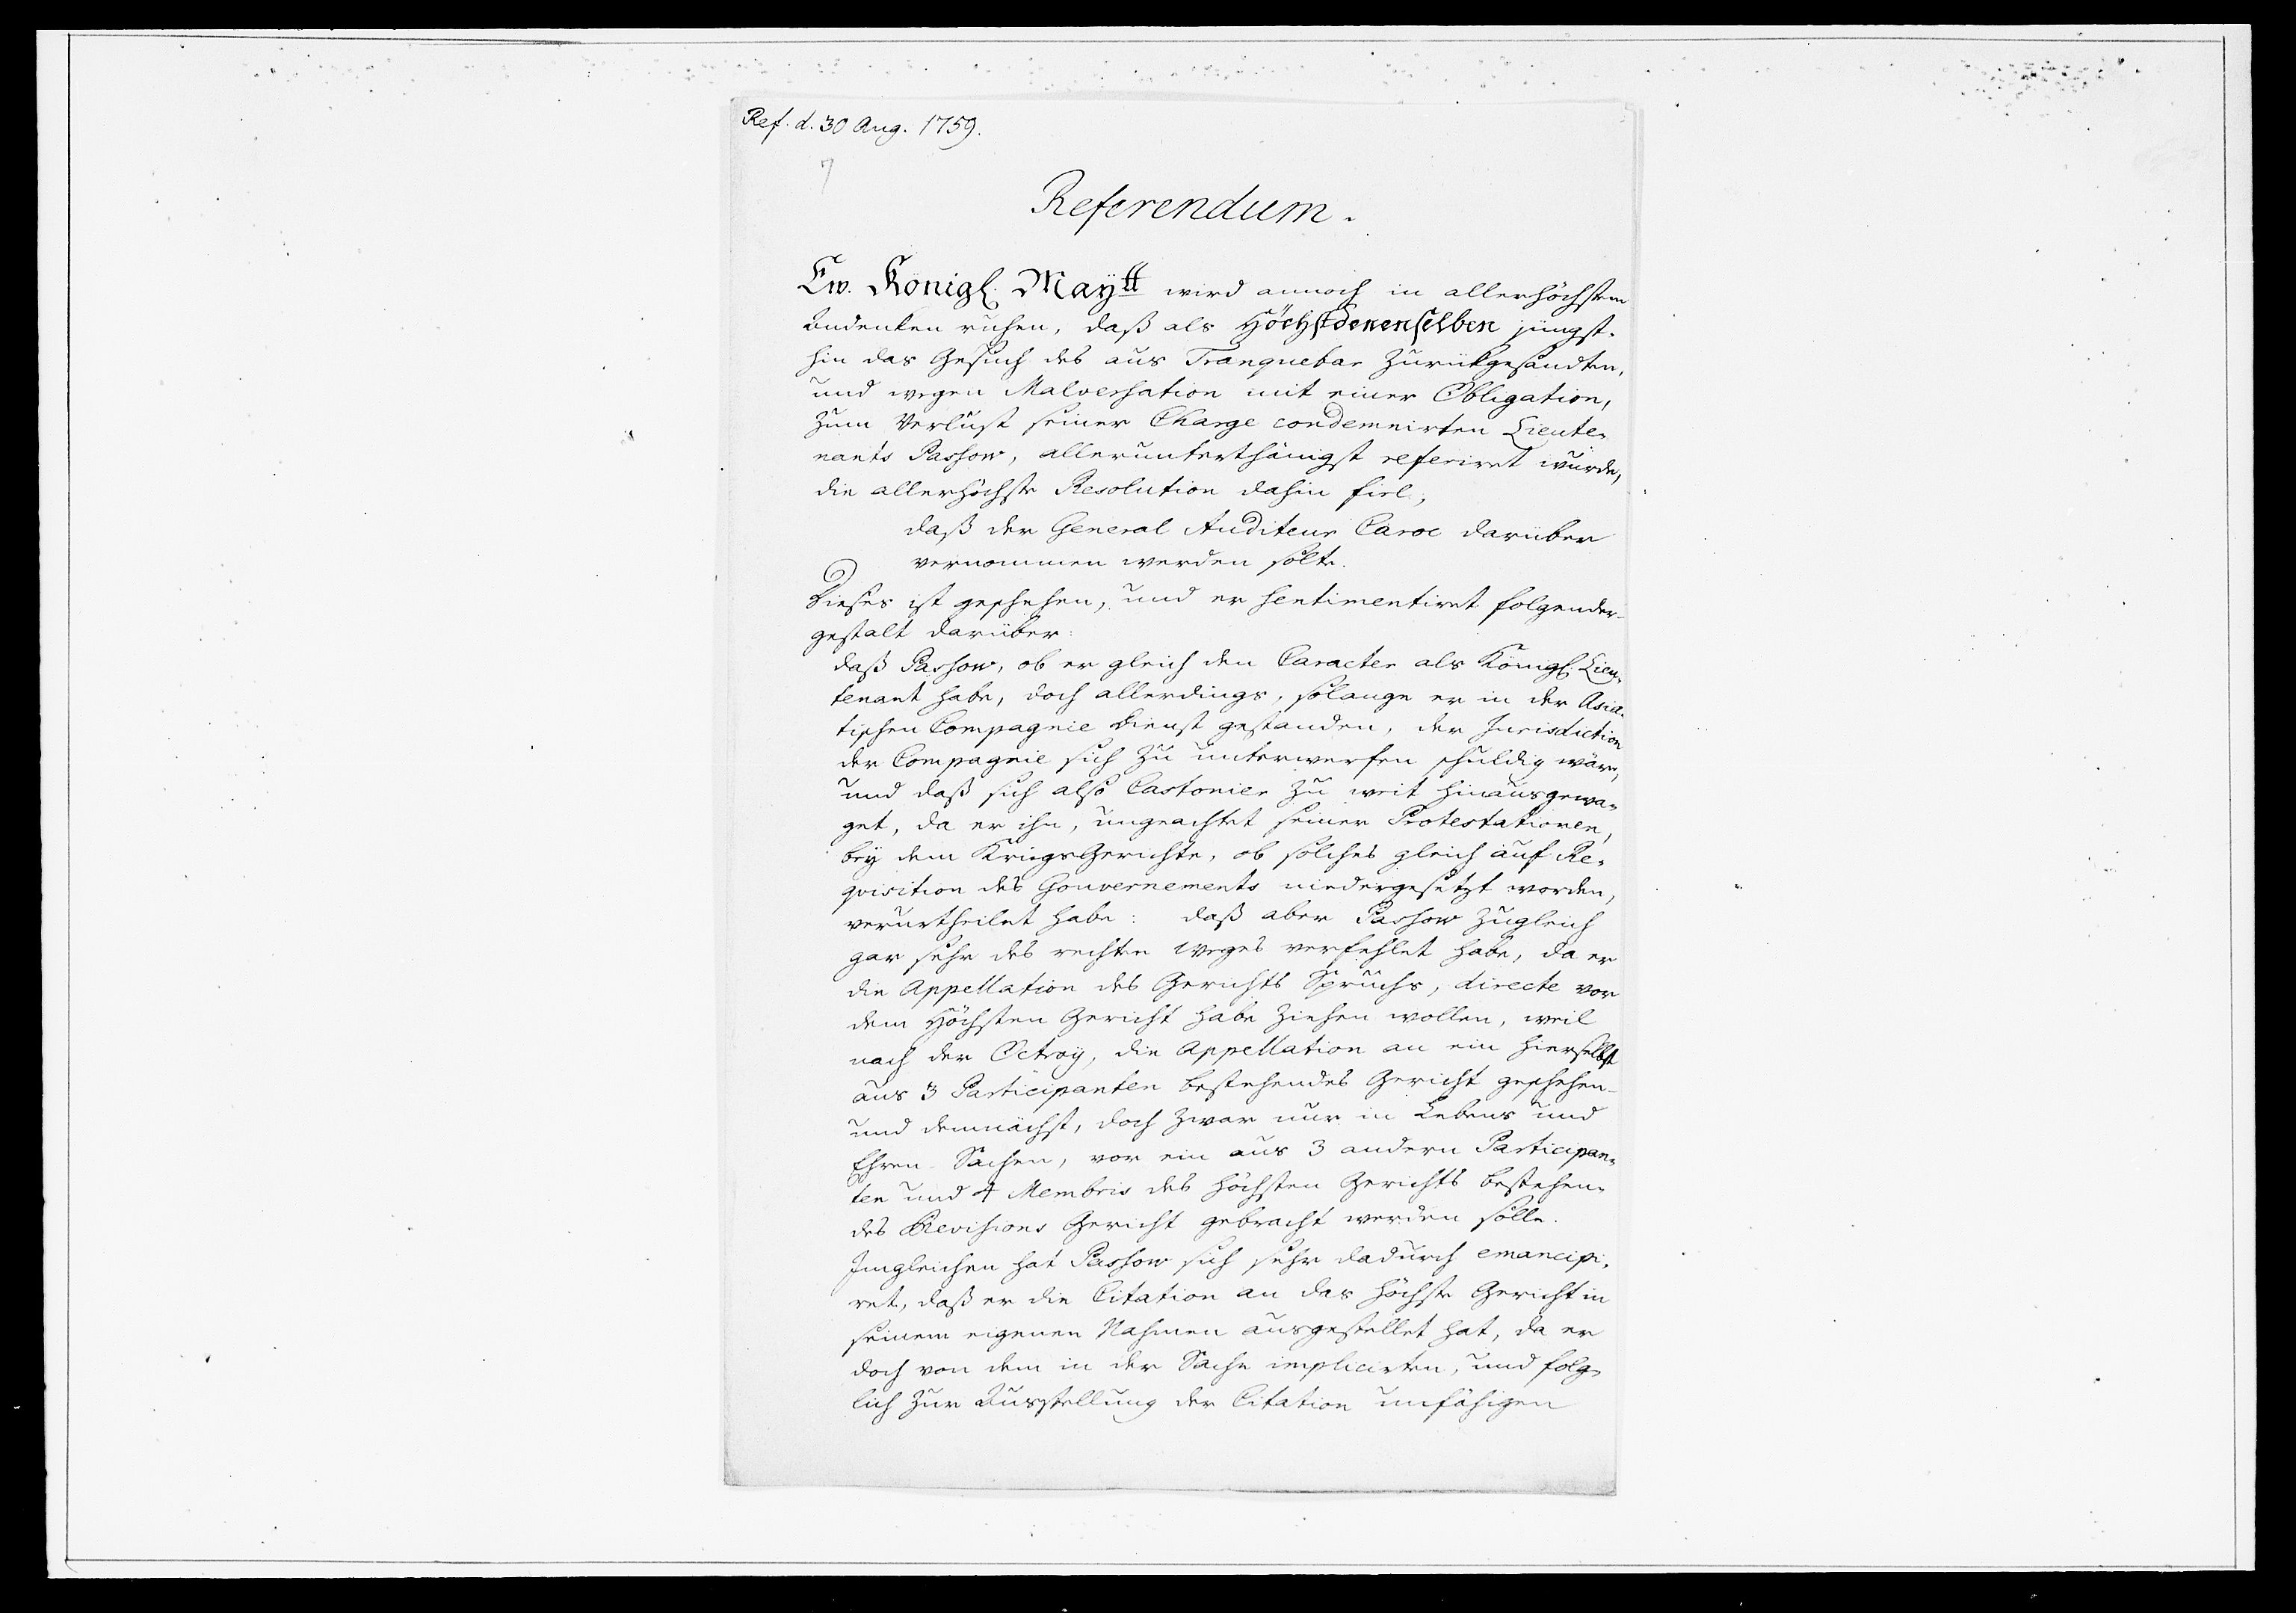 Ref. d. 30 Aug. 1759.
7
Referendum.
Ew. Königl. Maytt wird annoch in allerhöchstem
Andenken ruhen, daß als Höchstdenenselben jüngst-
hin das Gesuch des aus Tranquebar zurükgesandten,
und wegen Malversation mit einer Obligation,
zum Verlust seiner Charge condemnirten Lieute-
nants Passow, allerunterthänigst referiret wurde,
die allerhöchste Resolution dahin fiel,
daß der General Auditeur Caroc darüber
vernommen werden solte.
Dieses ist geschehen, und er sentimentiret folgender-
gestalt darüber:
daß Passow, ob er gleich den Caracter als Königl. Lieu-
tenant habe, doch allerdings, solange er in der Asia-
tischen Compagnie Dienst gestanden, der Jurisdiction
der Compagnie sich zu unterwerfen schuldig wäre,
und daß sich also Castonier zu weit hinausgewa-
get, da er ihn, ungeachtet seiner Protestationen,
bey dem KriegsGerichte, ob solches gleich auf Re-
qvisition des Gouvernements niedergesetzt worden,
verurtheilet habe: daß aber Passow zugleich
gar sehr des rechten Weges verfehlet habe, da er
die Appellation des Gerichts Spruchs, directe vor
dem Höchsten Gericht habe ziehen wollen, weil
nach der Octroy, die Appellation an ein hierselbst
aus 3 Participanten bestehendes Gericht geschehen-
und demnächst, doch zwar nur in Lebens und
Ehren-Sachen, vor ein aus 3 andern Participan-
ten und 4 Membris des Höchsten Gerichts bestehen-
des Revisions Gericht gebracht werden solle.
Jmgleichen hat Passow sich sehr dadurch emancipi-
ret, daß er die Citation an das Höchste Gericht in
seinem eigenen Nahmen ausgestellet hat, da er
doch von dem in der Sache implicirten, und folg-
lich zur Ausstellung der Citation unfähigen